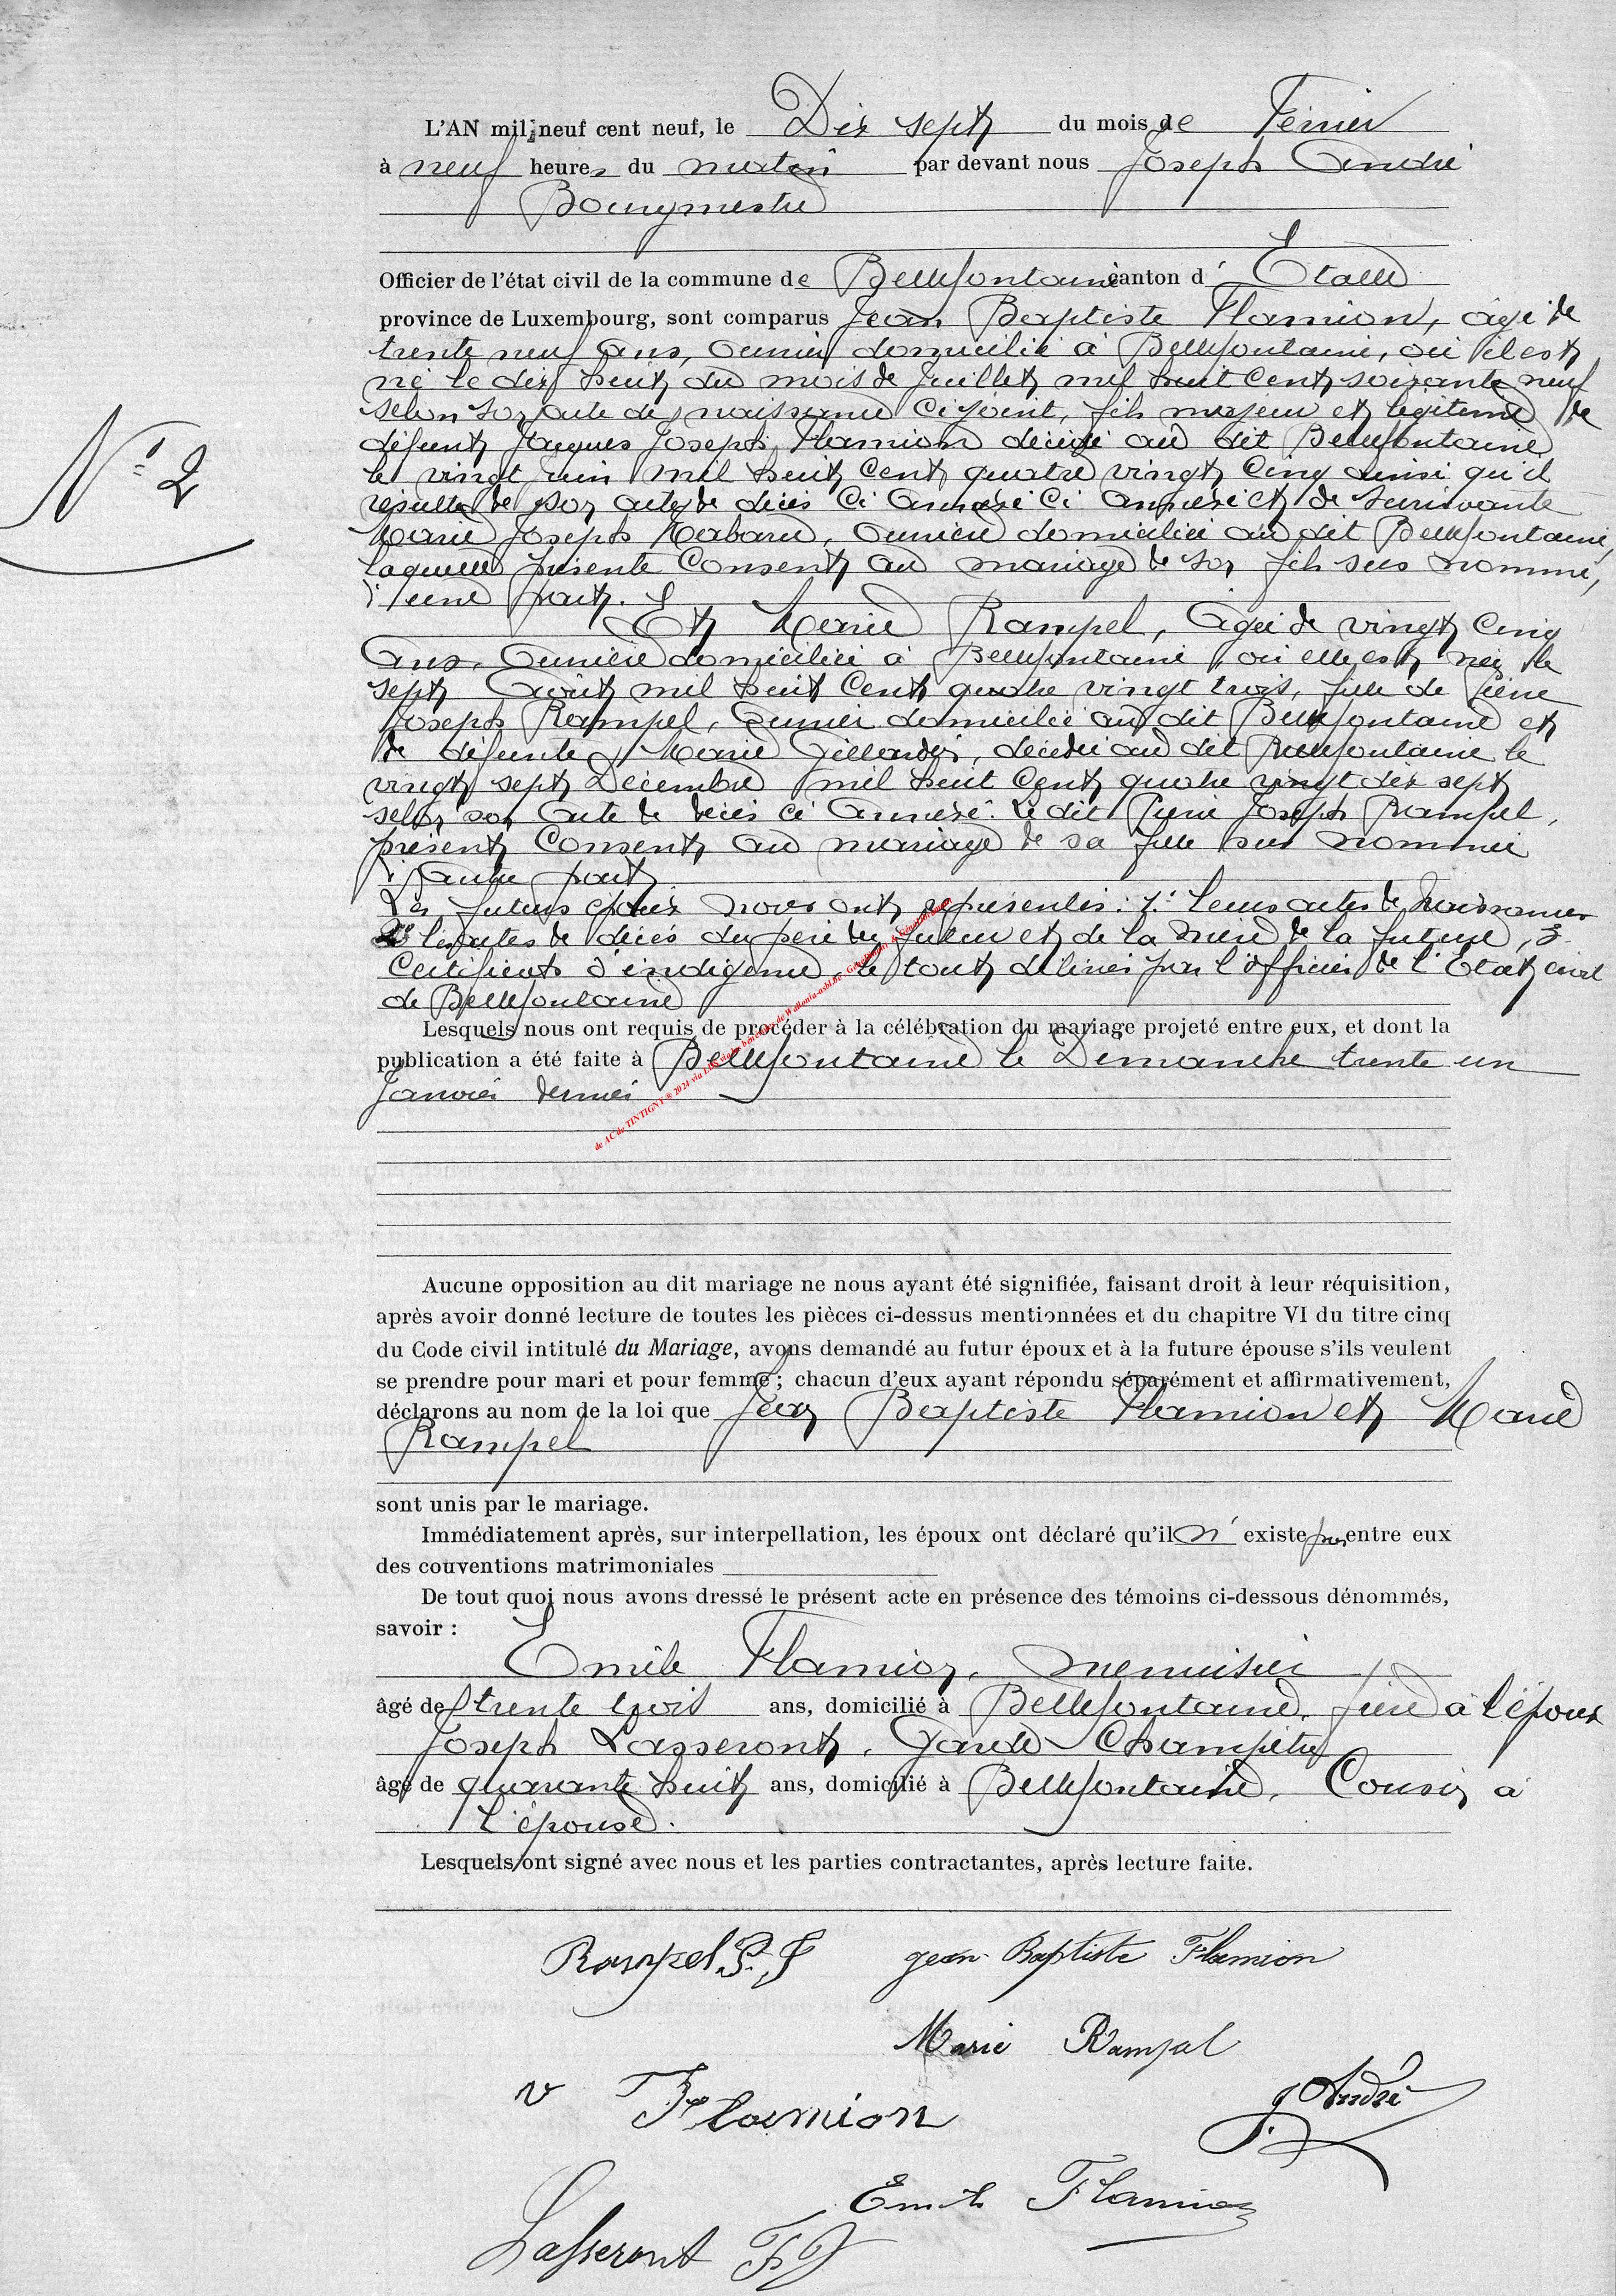 L'AN mil neuf cent neuf, le Dix sept du mois de Février
à neuf heures du matin par devant nous Joseph André
Bourgmestre
Officier de l'état civil de la commune de Bellefontaine canton d' Etalle
province de Luxembourg, sont comparus Jean Baptiste Flamion, âgé de
trente neuf ans, ouvrier domicilié à Bellefontaine, où il est
né le dix huit du mois de Juillet mil huit cent soixante neuf
selon son acte de naissance ci joint, fils majeur et légitime de
défunt Jacques Joseph Flamion décédé au dit Bellefontaine
le vingt juin mil huit cent quatre vingt cinq ainsi qu'il
résulte de son acte de décès ci annexé ci annexé et de survivante
Marie Joseph ouvrière domiciliée au dit Bellefontaine,
laquelle présente consent au mariage de son fils sus nommé,
d'une part.
Et Marie Rampel, âgée de vingt cinq
ans, ouvrière domiciliée à Bellefontaine, où elle est née le
sept Août mil huit cent quatre vingt trois, fille de Pierre
Joseph Rampel, ouvrier domicilié au dit Bellefontaine et
de défunte Marie décédée au dit Bellefontaine le
vingt sept Décembre mil huit cent quatre vingt dix sept
selon son acte de décès ci annexé. Le dit Pierre Joseph Rampel,
présent consent au mariage de sa fille sus nommée
d'autre part
Les futurs époux nous ont représentés: 1° leurs actes de naissances
2° les actes de décès du père du futur et de la mère de la future, 3°
Certificats d'indigence, le tout délivrés par l'officier de l'Etat civil
de Bellefontaine
Lesquels nous ont requis de procéder à la célébration du mariage projeté entre eux, et dont la
publication a été faite à Bellefontaine le Dimanche trente un
Janvier dernier
N° 2
de AC de TINTIGNY ® 2024 via
Aucune opposition au dit mariage ne nous ayant été signifiée, faisant droit à leur réquisition,
après avoir donné lecture de toutes les pièces ci-dessus mentionnées et du chapitre VI du titre cinq
du Code civil intitulé du Mariage, avons demandé au futur époux et à la future épouse s'ils veulent
se prendre pour mari et pour femme ; chacun d'eux ayant répondu séparément et affirmativement,
déclarons au nom de la loi que Jean Baptiste Flamion et Marie
Rampel
sont unis par le mariage.
Immédiatement après, sur interpellation, les époux ont déclaré qu'il n' existe pas entre eux
des conventions matrimoniales
De tout quoi nous avons dressé le présent acte en présence des témoins ci-dessous dénommés,
savoir :
Emile Flamion, menuisier
âgé de trente trois ans, domicilié à Bellefontaine, frère à l'époux
Joseph Lasseront, Garde Champêtre
âgé de quarante huit ans, domicilié à Bellefontaine, Cousin à
l'épouse.
Lesquels ont signé avec nous et les parties contractantes, après lecture faite.
Rampel P. J
jean Baptiste Flamion
Marie Rampel
v Flamion
J André
Emile Flamion
Lasseront FJ